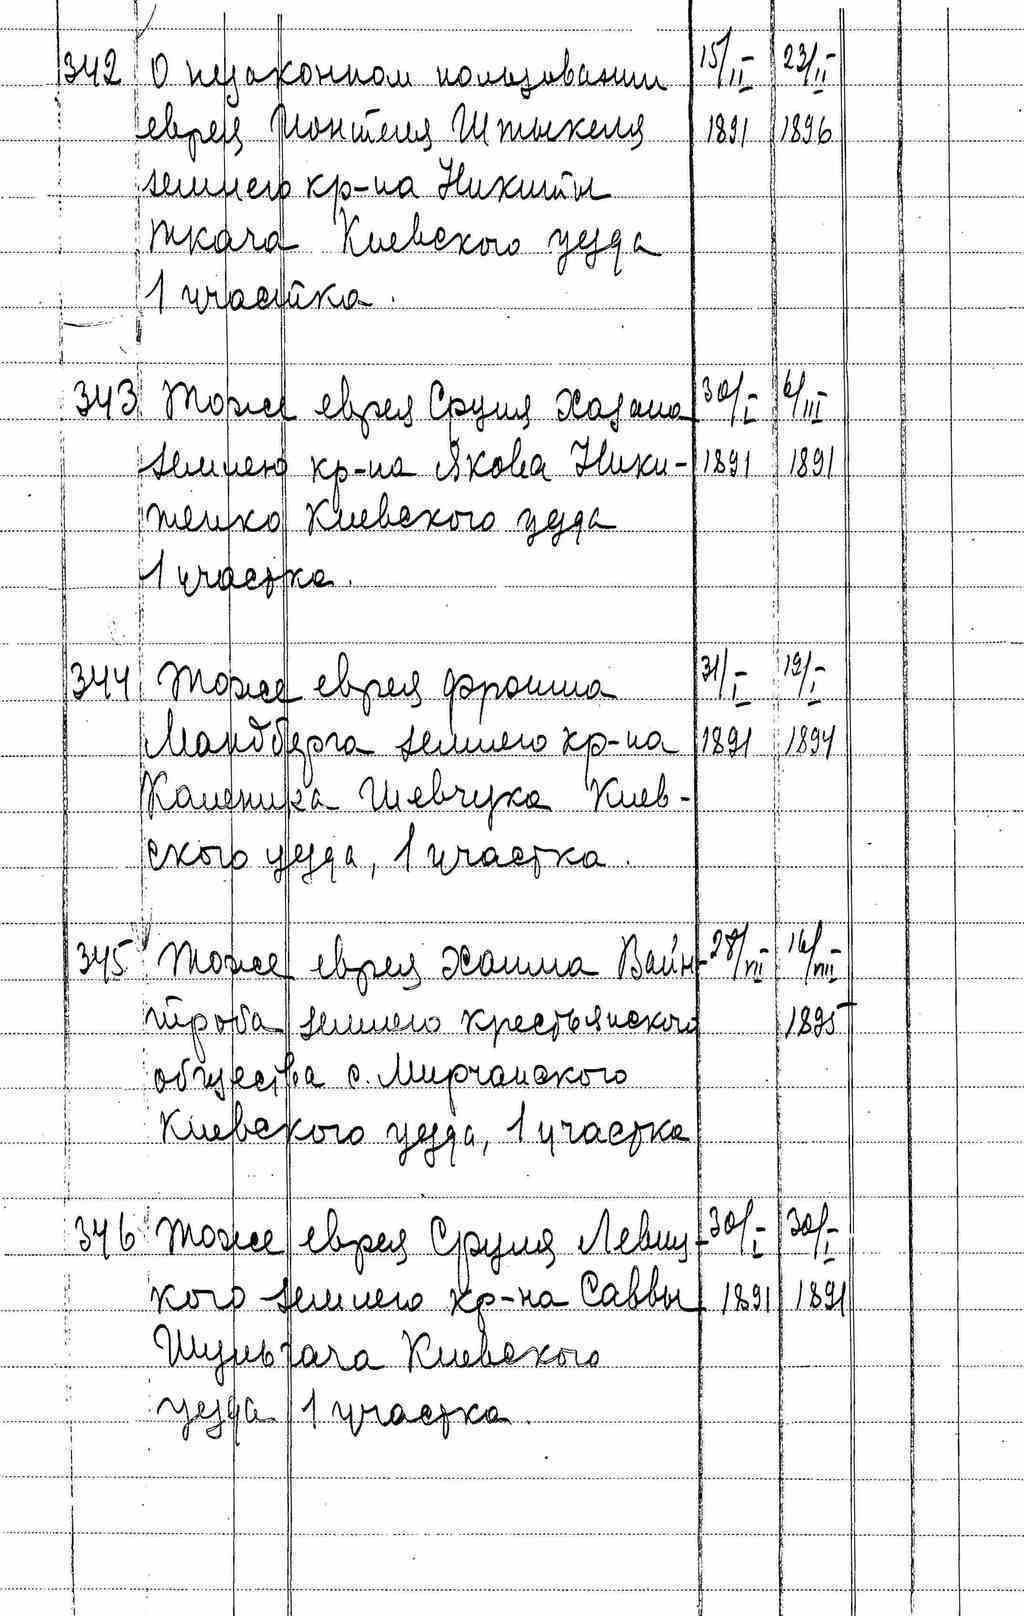 342 О незаконном пользовании 15/II 23/II
еврея Монтеля Штыкеля 1891 1896
землею кр-на Никиты
Ткача Киевского уезда
1 участка.
343 Тоже еврея Сруля Хазана 30/I 6/III
землею кр-на Якова Ники- 1891 1891
тенко Киевского уезда
1 участка.
344 Тоже еврея Фроима 31/I 19/I
Мандберга землею кр-на 1891 1894
Каленика Шевчука Киев-
ского уезда, 1 участка.
345 Тоже еврея Хаима Вайн- 28/VII 16/VIII
троба землею крестьянского 1895
общества с. Мирчанского
Киевского уезда, 1 участка
346 Тоже еврея Сруля Левиц- 30/I 30/I
кого землею кр-на Саввы 1891 1891
Шульгача Киевского
уезда 1 участка.